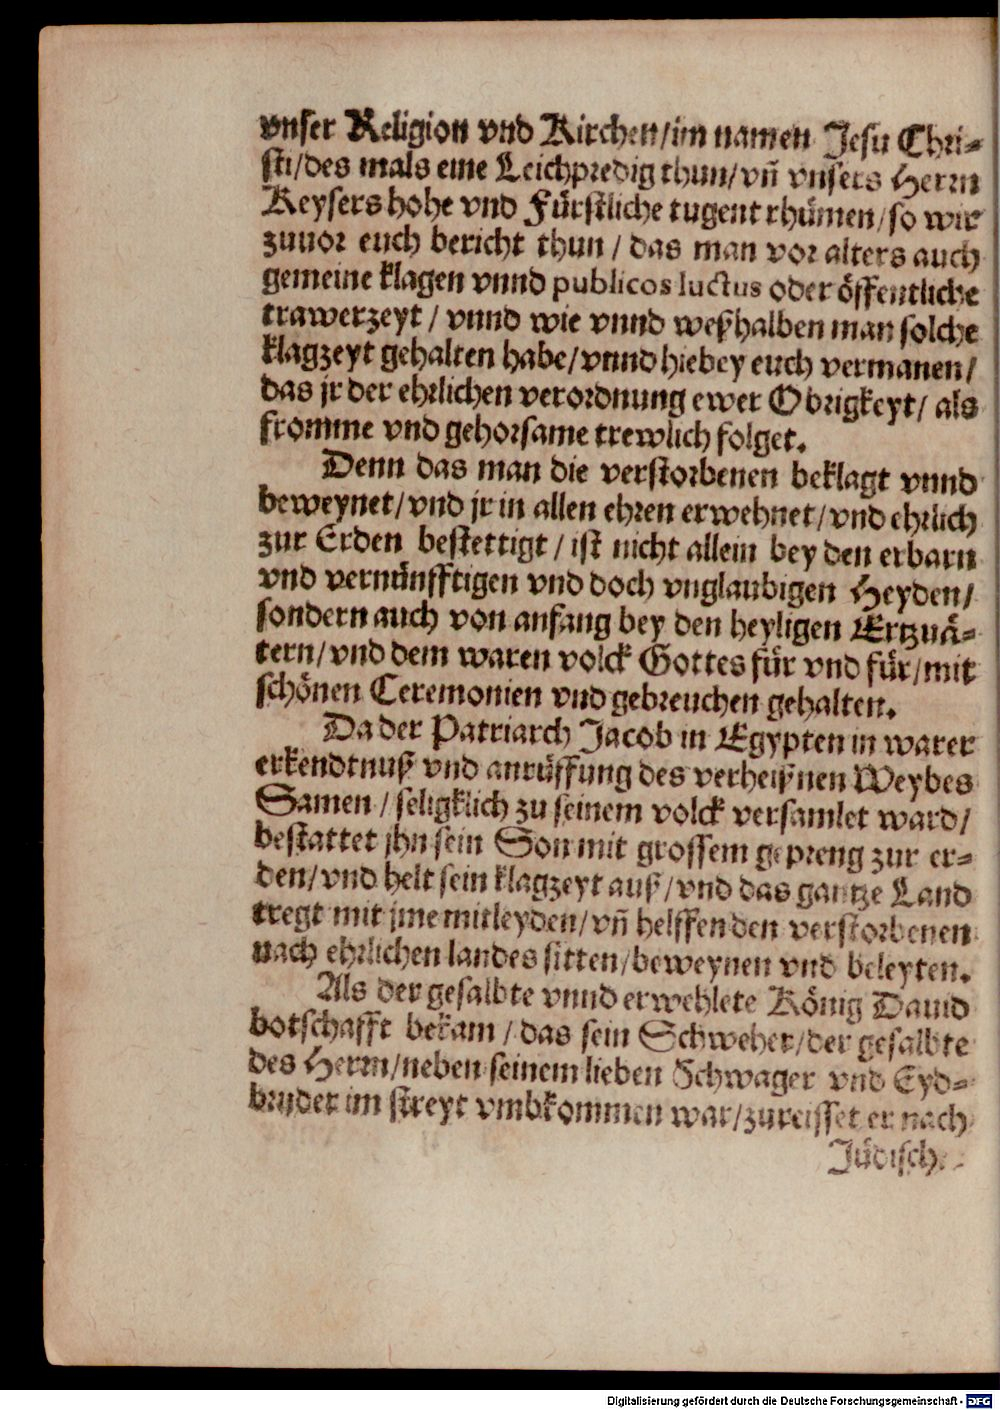 vnser Religion vnd Kirchen/im namen Jesu Chri⸗
sti/des mals eine Leichpredig thun/vñ vnsers Herrn
Keysers hohe vnd Fürstliche tugent rhümen/so wir
zuuor euch bericht thun / das man vor alters auch
gemeine klagen vnnd publicos luctus oder öffentliche
trawerzeyt / vnnd wie vnnd weßhalben man solche
klagzeyt gehalten habe/vnnd hiebey euch vermanen/
das jr der ehrlichen verordnung ewer Obrigkeyt/ als
fromme vnd gehorsame trewlich folget.
Denn das man die verstorbenen beklagt vnnd
beweynet/vnd jr in allen ehren erwehnet/vnd ehrlich
zur Erden bestettigt / ist nicht allein bey den erbarn
vnd vernünfftigen vnd doch vnglaubigen Heyden/
sondern auch von anfang bey den heyligen Ertzuä⸗
tern/vnd dem waren volck Gottes für vnd für/mit
schönen Ceremonien vnd gebreuchen gehalten.
Da der Patriarch Jacob in Egypten in warer
erkendtnuß vnd anrüffung des verheißnen Weybes
Samen / seligklich zu seinem volck versamlet ward/
bestattet jhn sein Son mit grossem gepreng zur er⸗
den/vnd helt sein klagzeyt auß/vnd das gantze Land
tregt mit jme mitleyden/vñ helffen den verstorbenen
nach ehrlichen landes sitten/beweynen vnd beleyten.
Als der gesalbte vnnd erwehlete König Dauid
botschafft bekam / das sein Schweher/der gesalbte
des Herrn/neben seinem lieben Schwager vnd Eyd⸗
bruder im streyt vmbkommen war/zureisset er nach
Jüdisch⸗
Digitalisierung gefördert durch die Deutsche Forschungsgemeinschaft - DFG